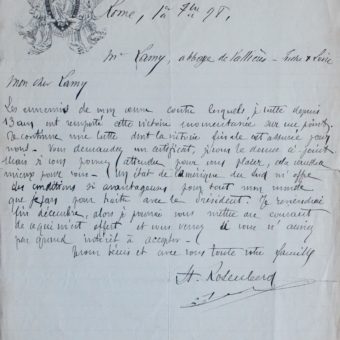 Rome, 1er 9bre 98,
Mr Lamy, abbaye de
Mon cher Lamy
Les ennemis de mon œuvre contre lesquels je lutte depuis
13 ans ont remporté cette victoire momentanée sur ce point
Je continue une lutte dont la victoire finale est assurée pour
nous. Vous demandez un certificat, je vous le donne ci-joint
Mais si vous pouvez attendre pour vous placer, cela vaudra
mieux pour vous. Un état de l'amérique du Sud m'offre
des conditions si avantageuses pour tout mon monde
que je pars pour traiter avec le président. Je reviendrai
fin décembre, alors je pourrai vous mettre au courant
de ce qui m'est offert et vous verrez si vous n'aurez
pas grand intérêt à accepter.
et avec vous toute votre famille
H. Rosenberg